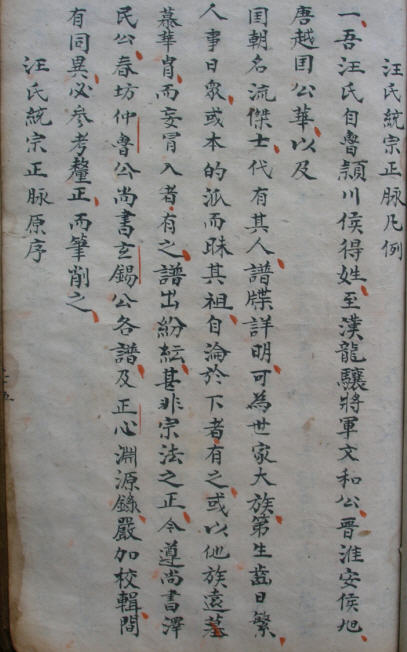 汪氏統宗正脉凡例
一吾汪氏自魯潁川侯得姓至漢龍驤將軍文和公晉淮安侯旭
唐越国公華以及
国朝名流傑士代有其人譜牒詳明可為世家大族第生齒日繁
人事日衆或本的派而昧其祖自淪於下者有之或以他族遠墓
慕華肖而妄冒入者有之譜出紛紜甚非宗法之正今遵尚書澤
民公春坊仲魯公尚書玄錫公各譜及正心淵源錄嚴加校輯間
有同異必参考釐正而筆削之
汪氏統宗正脉原序